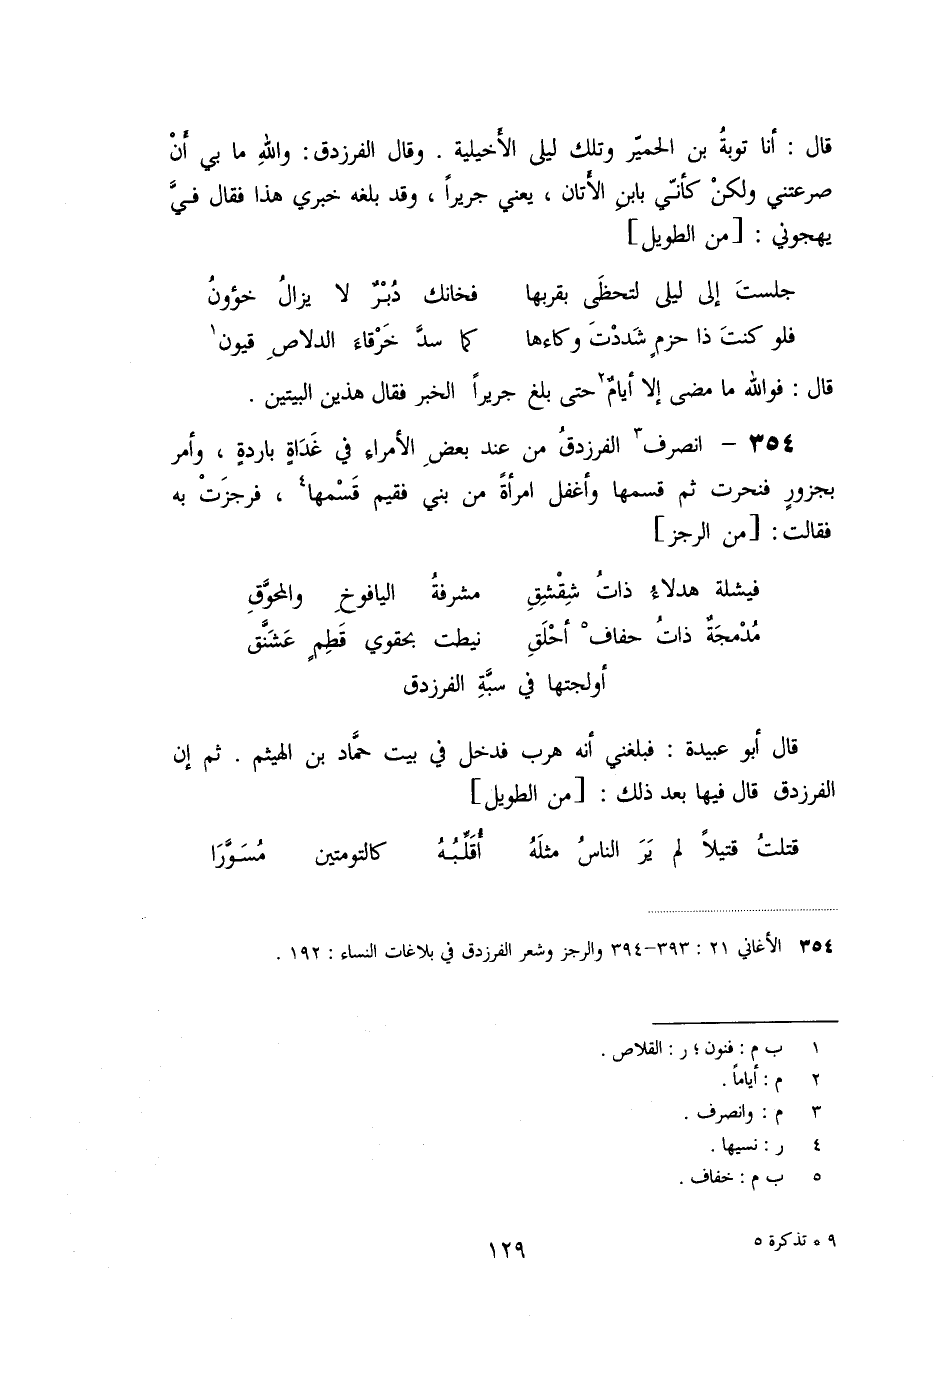 قال : أنا توبةُ بن الحميّر وتلك ليلى الأَخيلية . وقال الفرزدق : واللهِ ما بي أَنْ
صرعتني ولكنْ كأَنّي بابنِ الأَتان ، يعني جريراً ، وقد بلغه خبري هذا فقال فيَّ
يهجوني : [من الطويل]
جلستَ إلى ليلى لتحظَى بقربها فخانك دُبْرٌ لا يزالُ خؤونُ
فلو كنتَ ذا حزمٍ شَددْتَ وكاءها كما سدَّ خَرْقاءَ الدلاصِ قيون١
قال : فوالله ما مضى إلا أيامٌ٢ حتى بلغ جريراً الخبر فقال هذين البيتين .
٣٥٤ – انصرف٣ الفرزدقُ من عند بعضِ الأمراءِ في غَدَاةٍ باردةٍ ، وأمر
بجزورٍ فنحرت ثم قسمها وأغفل امرأةً من بني فقيم قَسْمها٤ ، فرجزَتْ به
فقالت : [من الرجز]
فيشلة هدلاءُ ذاتُ شِقْشِقِ مشرفةُ اليافوخِ والمحوَّقِ
مُدْمجَةٌ ذاتُ حفاف٥ أحْلَقِ نيطت بحقوي قَطِمٍ عَشَنَّق
أولجتها في سبَّةِ الفرزدق
قال أبو عبيدة : فبلغني أنه هرب فدخل في بيت حمَّاد بن الهيثم . ثم إن
الفرزدق قال فيها بعد ذلك : [من الطويل]
قتلتُ قتيلاً لم يَرَ الناسُ مثلَهُ أُقَلِّبُهُ كالتومتين مُسَوَّرَا
٣٥٤ الأغاني ٢١ : ٣٩٣–٣٩٤ والرجز وشعر الفرزدق في بلاغات النساء : ١٩٢ .
١ ب م : فنون ؛ ر : القلاص .
٢ م : أياماً .
٣ م : وانصرف .
٤ ر : نسيها .
٥ ب م : خفاف .
٩ * تذكرة ٥
١٢٩